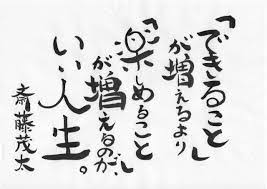 「できること」
が増えるより
「楽しめること」
が増えるのが、
いい人生。
斎藤茂太